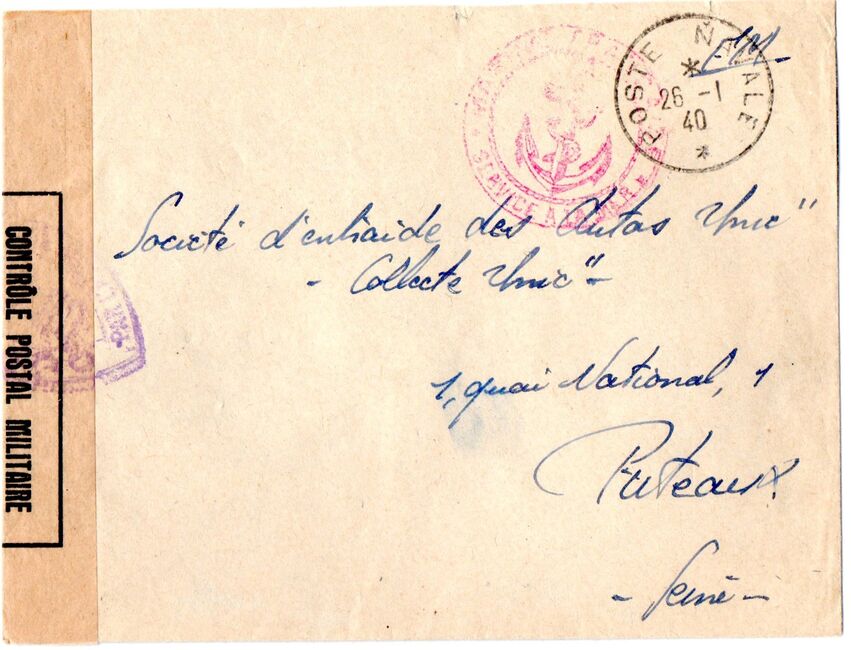 FM
POSTE NAVALE
26 -1
40
MARINE FRANÇAISE
SERVICE A LA MER
Société d'entraide des Autos Unic"
- Collecte Unic" -
1, quai National, 1
Puteaux.
- Seine -
CONTRÔLE POSTAL MILITAIRE